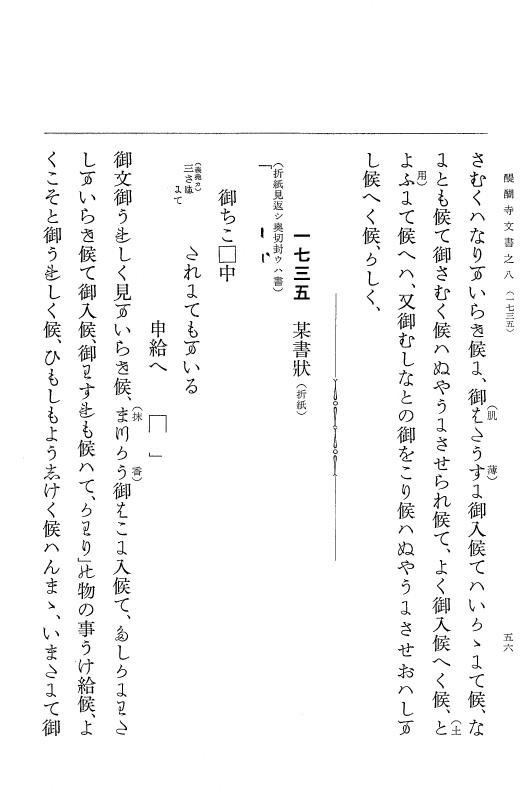 醍醐寺文書之八（一七三五）
五六
さむくハなりまいらせ候ニ、御はたうすニ御入候てハいかゝにて候、な
にとも候て御さむく候ハぬやうニさせられ候て、よく御入候へく候、と
ようにて候へハ、又御むしなとの御をこり候ハぬやうニさせおハしま
し候へく候、かしく、
（肌）
（薄）
（土
用）
一七三五　某書狀（折紙）
（折紙見返シ奥切封ウハ書）
「
御ちこ□中
（義堯カ）
三さ
にて
されにても
申給へ
」
御文御うれしく見まいらせ候、まつかう御はこニ入候て、たしかにわた
しまいらせ候て御入候、御わすれも候ハて、かわり」の物の事うけ給候、よ
くこそと御うれしく候、ひもしもようしけく候ハんまゝ、いまさにて御
（抹
香）